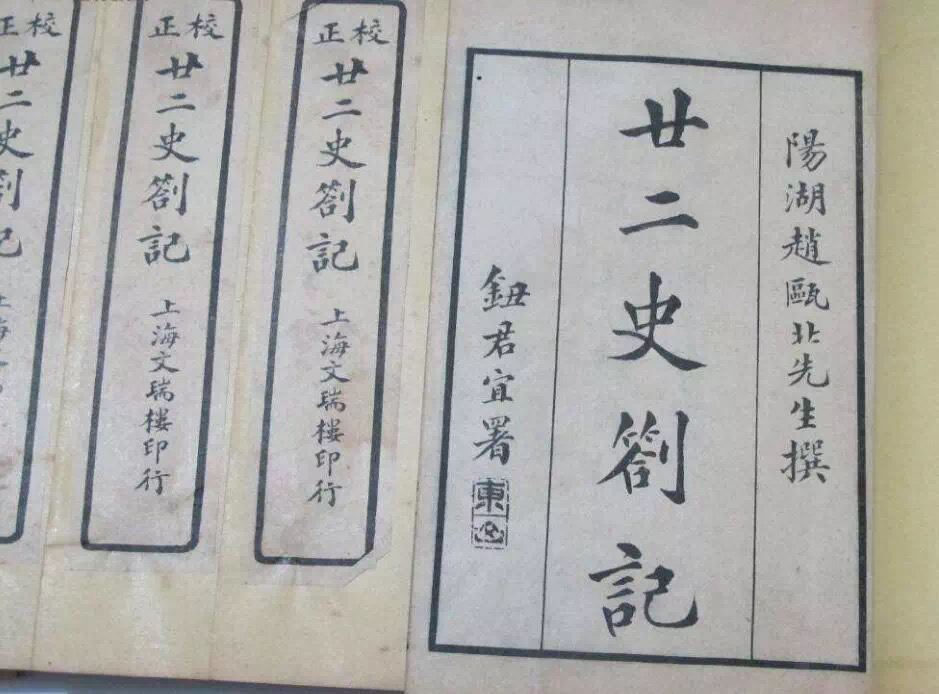 陽湖趙甌北先生撰
廿二史劄記
鈕君宜署
東
校正
廿二史劄記
上海文瑞樓印行
校正
廿二史劄記
上海文瑞樓印行
校正
廿二史劄記